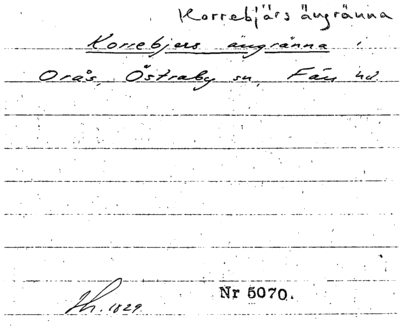 Korrebjärs ängränna
Korrebjers ängränna i
Orås, Östraby sn, Fäu hd
Th. 1829.
Nr 5070.